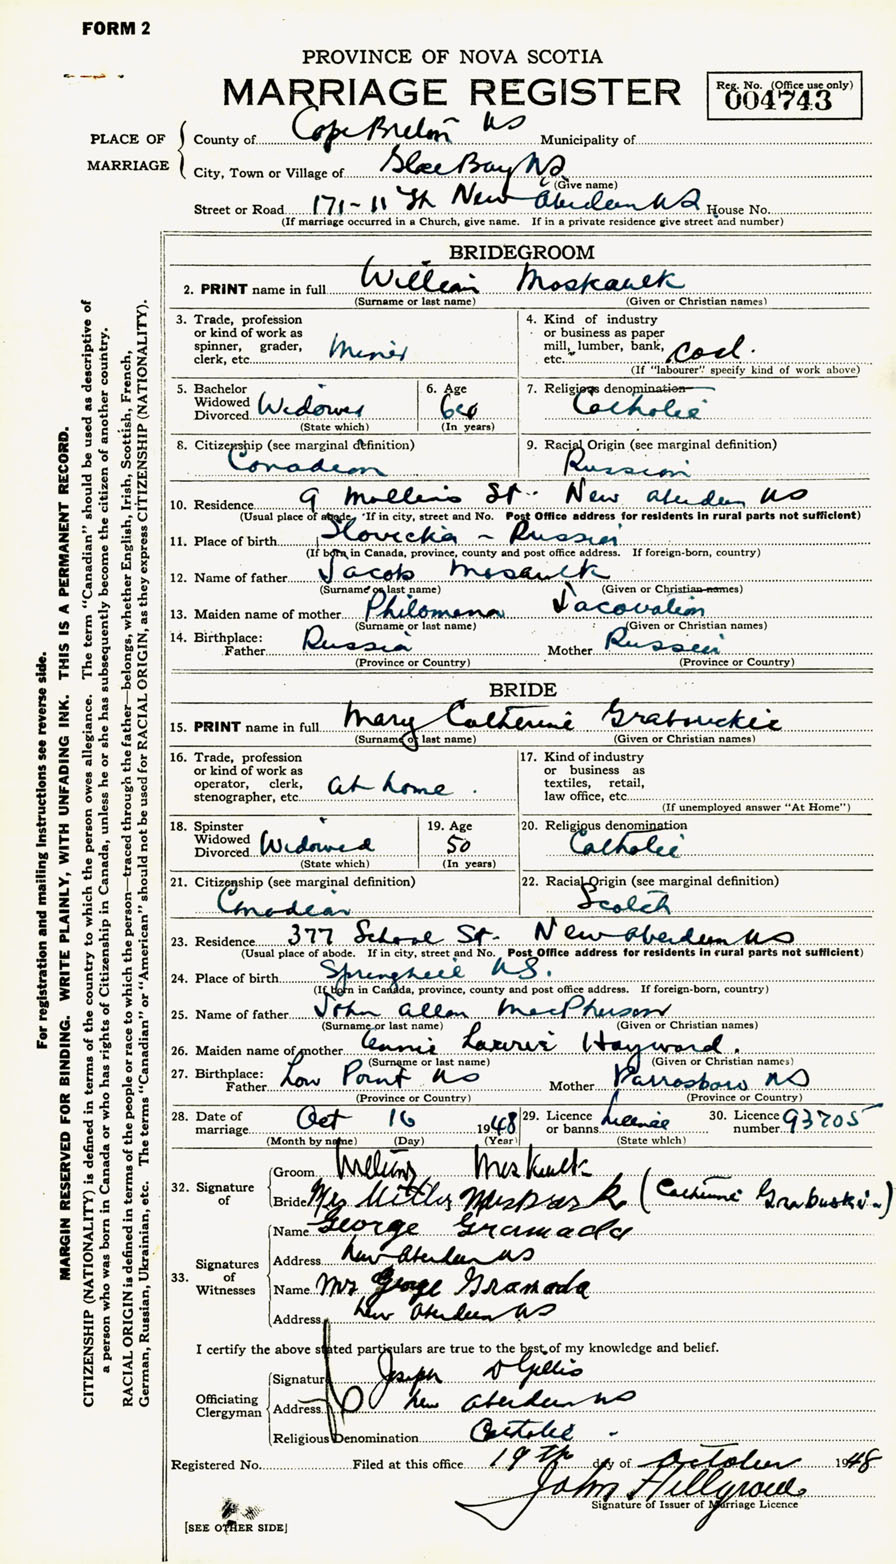 FORM 2
PROVINCE OF NOVA SCOTIA
MARRIAGE REGISTER
Reg. No. (Office use only)
004743
PLACE OF MARRIAGE
County of Cape Breton NS Municipality of
City, Town or Village of Glace Bay NS
(Give name)
Street or Road 171-11 St New Aberdeen NS House No.
(If marriage occurred in a Church, give name. If in a private residence give street and number)
BRIDEGROOM
2. PRINT name in full William Moskaulk
(Surname or last name) (Given or Christian names)
3. Trade, profession or kind of work as spinner, grader, clerk, etc. Miner
4. Kind of industry or business as paper mill, lumber, bank, etc. Coal.
(If "labourer" specify kind of work above)
5. Bachelor Widowed Divorced Widower
(State which)
6. Age 60
(In years)
7. Religious denomination Catholic
8. Citizenship (see marginal definition) Canadian
9. Racial Origin (see marginal definition) Russian
10. Residence 9 St. New Aberdeen NS
(Usual place of abode. If in city, street and No. Post Office address for residents in rural parts not sufficient)
11. Place of birth Slovickia - Russia
(If born in Canada, province, county and post office address. If foreign-born, country)
12. Name of father Jacob Mosaulk
(Surname or last name) (Given or Christian names)
13. Maiden name of mother Philomena
(Surname or last name) (Given or Christian names)
14. Birthplace:
Father Russia Mother Russia
(Province or Country) (Province or Country)
BRIDE
15. PRINT name in full Mary Catherine Grabouckie
(Surname or last name) (Given or Christian names)
16. Trade, profession or kind of work as operator, clerk, stenographer, etc. at home.
17. Kind of industry or business as textiles, retail, law office, etc.
(If unemployed answer "At Home")
18. Spinster Widowed Divorced Widowed
(State which)
19. Age 50
(In years)
20. Religious denomination Catholic
21. Citizenship (see marginal definition) Canadian
22. Racial Origin (see marginal definition) Scotch
23. Residence 377 School St. New Aberdeen NS
(Usual place of abode. If in city, street and No. Post Office address for residents in rural parts not sufficient)
24. Place of birth Springhill N.S.
(If born in Canada, province, county and post office address. If foreign-born, country)
25. Name of father John Allan MacPherson
(Surname or last name) (Given or Christian names)
26. Maiden name of mother Annie Hayward.
(Surname or last name) (Given or Christian names)
27. Birthplace:
Father Low Point NS Mother Parrsboro NS
(Province or Country) (Province or Country)
28. Date of marriage Oct 16 1948
(Month by name) (Day) (Year)
29. Licence or banns License
(State which)
30. Licence number 93705
32. Signature of
Groom William Moskaulk
Bride Mrs (Catherine
33. Signatures of Witnesses
Name George Gramada
Address New Aberdeen NS
Name Mrs George Gramada
Address New Aberdeen NS
I certify the above stated particulars are true to the best of my knowledge and belief.
Officiating Clergyman
Signature Joseph D Gillis
Address New Aberdeen NS
Religious Denomination Catholic
Registered No. Filed at this office 19th day of October 1948
John
Signature of Issuer of Marriage Licence
[SEE OTHER SIDE]
For registration and mailing instructions see reverse side.
MARGIN RESERVED FOR BINDING. WRITE PLAINLY, WITH UNFADING INK. THIS IS A PERMANENT RECORD.
CITIZENSHIP (NATIONALITY) is defined in terms of the country to which the person owes allegiance. The term "Canadian" should be used as descriptive of
a person who was born in Canada or who has rights of Citizenship in Canada, unless he or she has subsequently become the citizen of another country.
RACIAL ORIGIN is defined in terms of the people or race to which the person—traced through the father—belongs, whether English, Irish, Scottish, French,
German, Russian, Ukrainian, etc. The terms "Canadian" or "American" should not be used for RACIAL ORIGIN, as they express CITIZENSHIP (NATIONALITY).